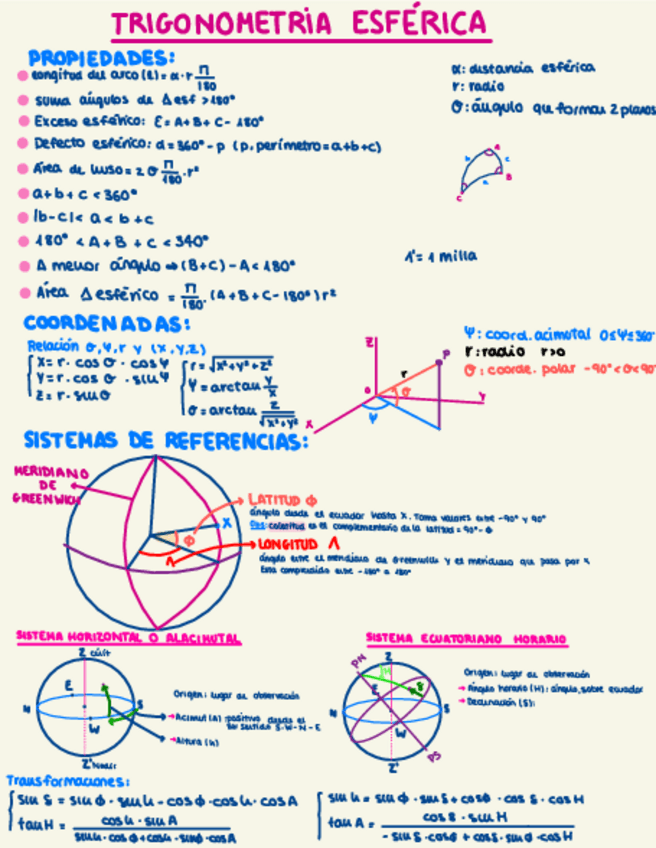 TRIGONOMETRÍA ESFÉRICA
PROPIEDADES:
Longitud del arco (l) = α·r π/180
suma ángulos de Δ esf > 180°
Exceso esférico: E = A + B + C - 180°
Defecto esférico: d = 360° - p (p. perímetro = a+b+c)
Área de huso = 2 σ π/180 · r²
a + b + c < 360°
|b-c| < a < b + c
180° < A + B + C < 540°
A menor ángulo ⇒ (B+C) - A < 180°
Área Δ esférico = π/180 · (A + B + C - 180°) r²
α: distancia esférica
r: radio
σ: ángulo que forman 2 planos
A
b
c
a
B
C
1' = 1 milla
COORDENADAS:
Relación σ, Ψ, r y (x, y, z)
x = r · cos σ · cos Ψ
y = r · cos σ · sin Ψ
z = r · sin σ
r = √x² + y² + z²
Ψ = arctan y/x
σ = arctan z/√x² + y²
z
P
r
σ
Ψ
x
y
Ψ: coord. acimutal 0≤Ψ≤360°
r: radio r>0
σ: coorde. polar -90°<σ<90°
SISTEMAS DE REFERENCIAS:
MERIDIANO
DE
GREENWICH
X
Φ
Λ
LATITUD Φ
ángulo desde el ecuador hasta X. Toma valores entre -90° y 90°
colatitud es el complementario de la latitud = 90° - Φ
LONGITUD Λ
ángulo entre el meridiano de Greenwich y el meridiano que pasa por X
Está comprendido entre -180° a 180°
SISTEMA HORIZONTAL O ALACIMUTAL
Z cénit
E
N
S
W
Z' Nadir
Origen: lugar de observación
Acimut (A): positivo desde el
sentido S-W-N-E
Altura (h)
SISTEMA ECUATORIANO HORARIO
PN
Z
H
E
N
S
W
Z'
PS
Origen: lugar de observación
Ángulo horario (H): ángulo sobre ecuador
Declinación (δ):
Transformaciones:
sin δ = sin Φ · sin h - cos Φ · cos h · cos A
tan H = cos h · sin A / sin h · cos Φ + cos h · sin Φ · cos A
sin h = sin Φ · sin δ + cos Φ · cos δ · cos H
tan A = cos δ · sin H / - sin δ · cos Φ + cos δ · sin Φ · cos H